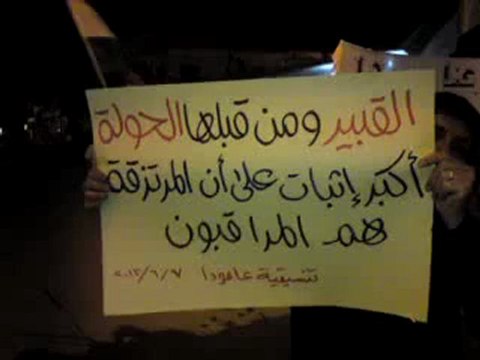 القبير ومن قبلها الحولة
أكبر إثبات على أن المرتزقة
هم المراقبون
تنسيقية عامودا ٢٠١٢/٦/٧